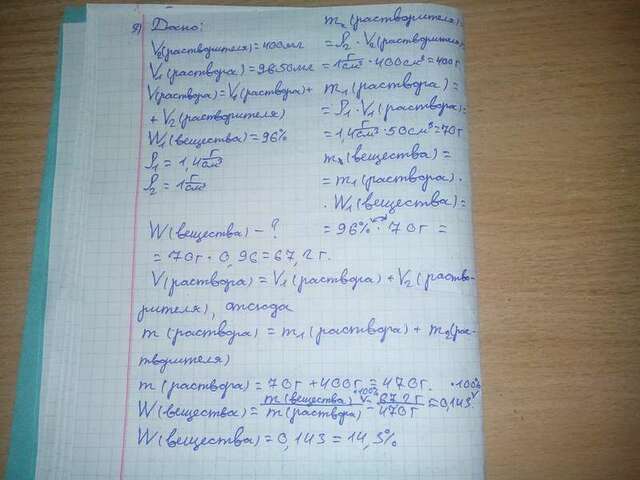 9) Дано:
V2(растворителя) = 400мл
V1(раствора) = 50мл
V(раствора) = V1(раствора) +
+ V2(растворителя)
W1(вещества) = 96%
ρ1 = 1,4 г/см³
ρ2 = 1 г/см³
W(вещества) - ?
m2(растворителя) =
= ρ2 · V2(растворителя) =
= 1 г/см³ · 400см³ = 400г
m1(раствора) =
= ρ1 · V1(раствора) =
= 1,4 г/см³ · 50см³ = 70г
(вещества) =
= m1(раствора) ·
· W1(вещества) =
= 96% · 70г =
= 70г · 0,96 = 67,2г.
V(раствора) = V1(раствора) + V2(раство-
рителя), отсюда
m(раствора) = m1(раствора) + m2(рас-
творителя)
m(раствора) = 70г + 400г = 470г.
W(вещества) = m(вещества) · 100% / m(раствора) = 67,2г / 470г = 0,143 · 100%
W(вещества) = 0,143 = 14,3%